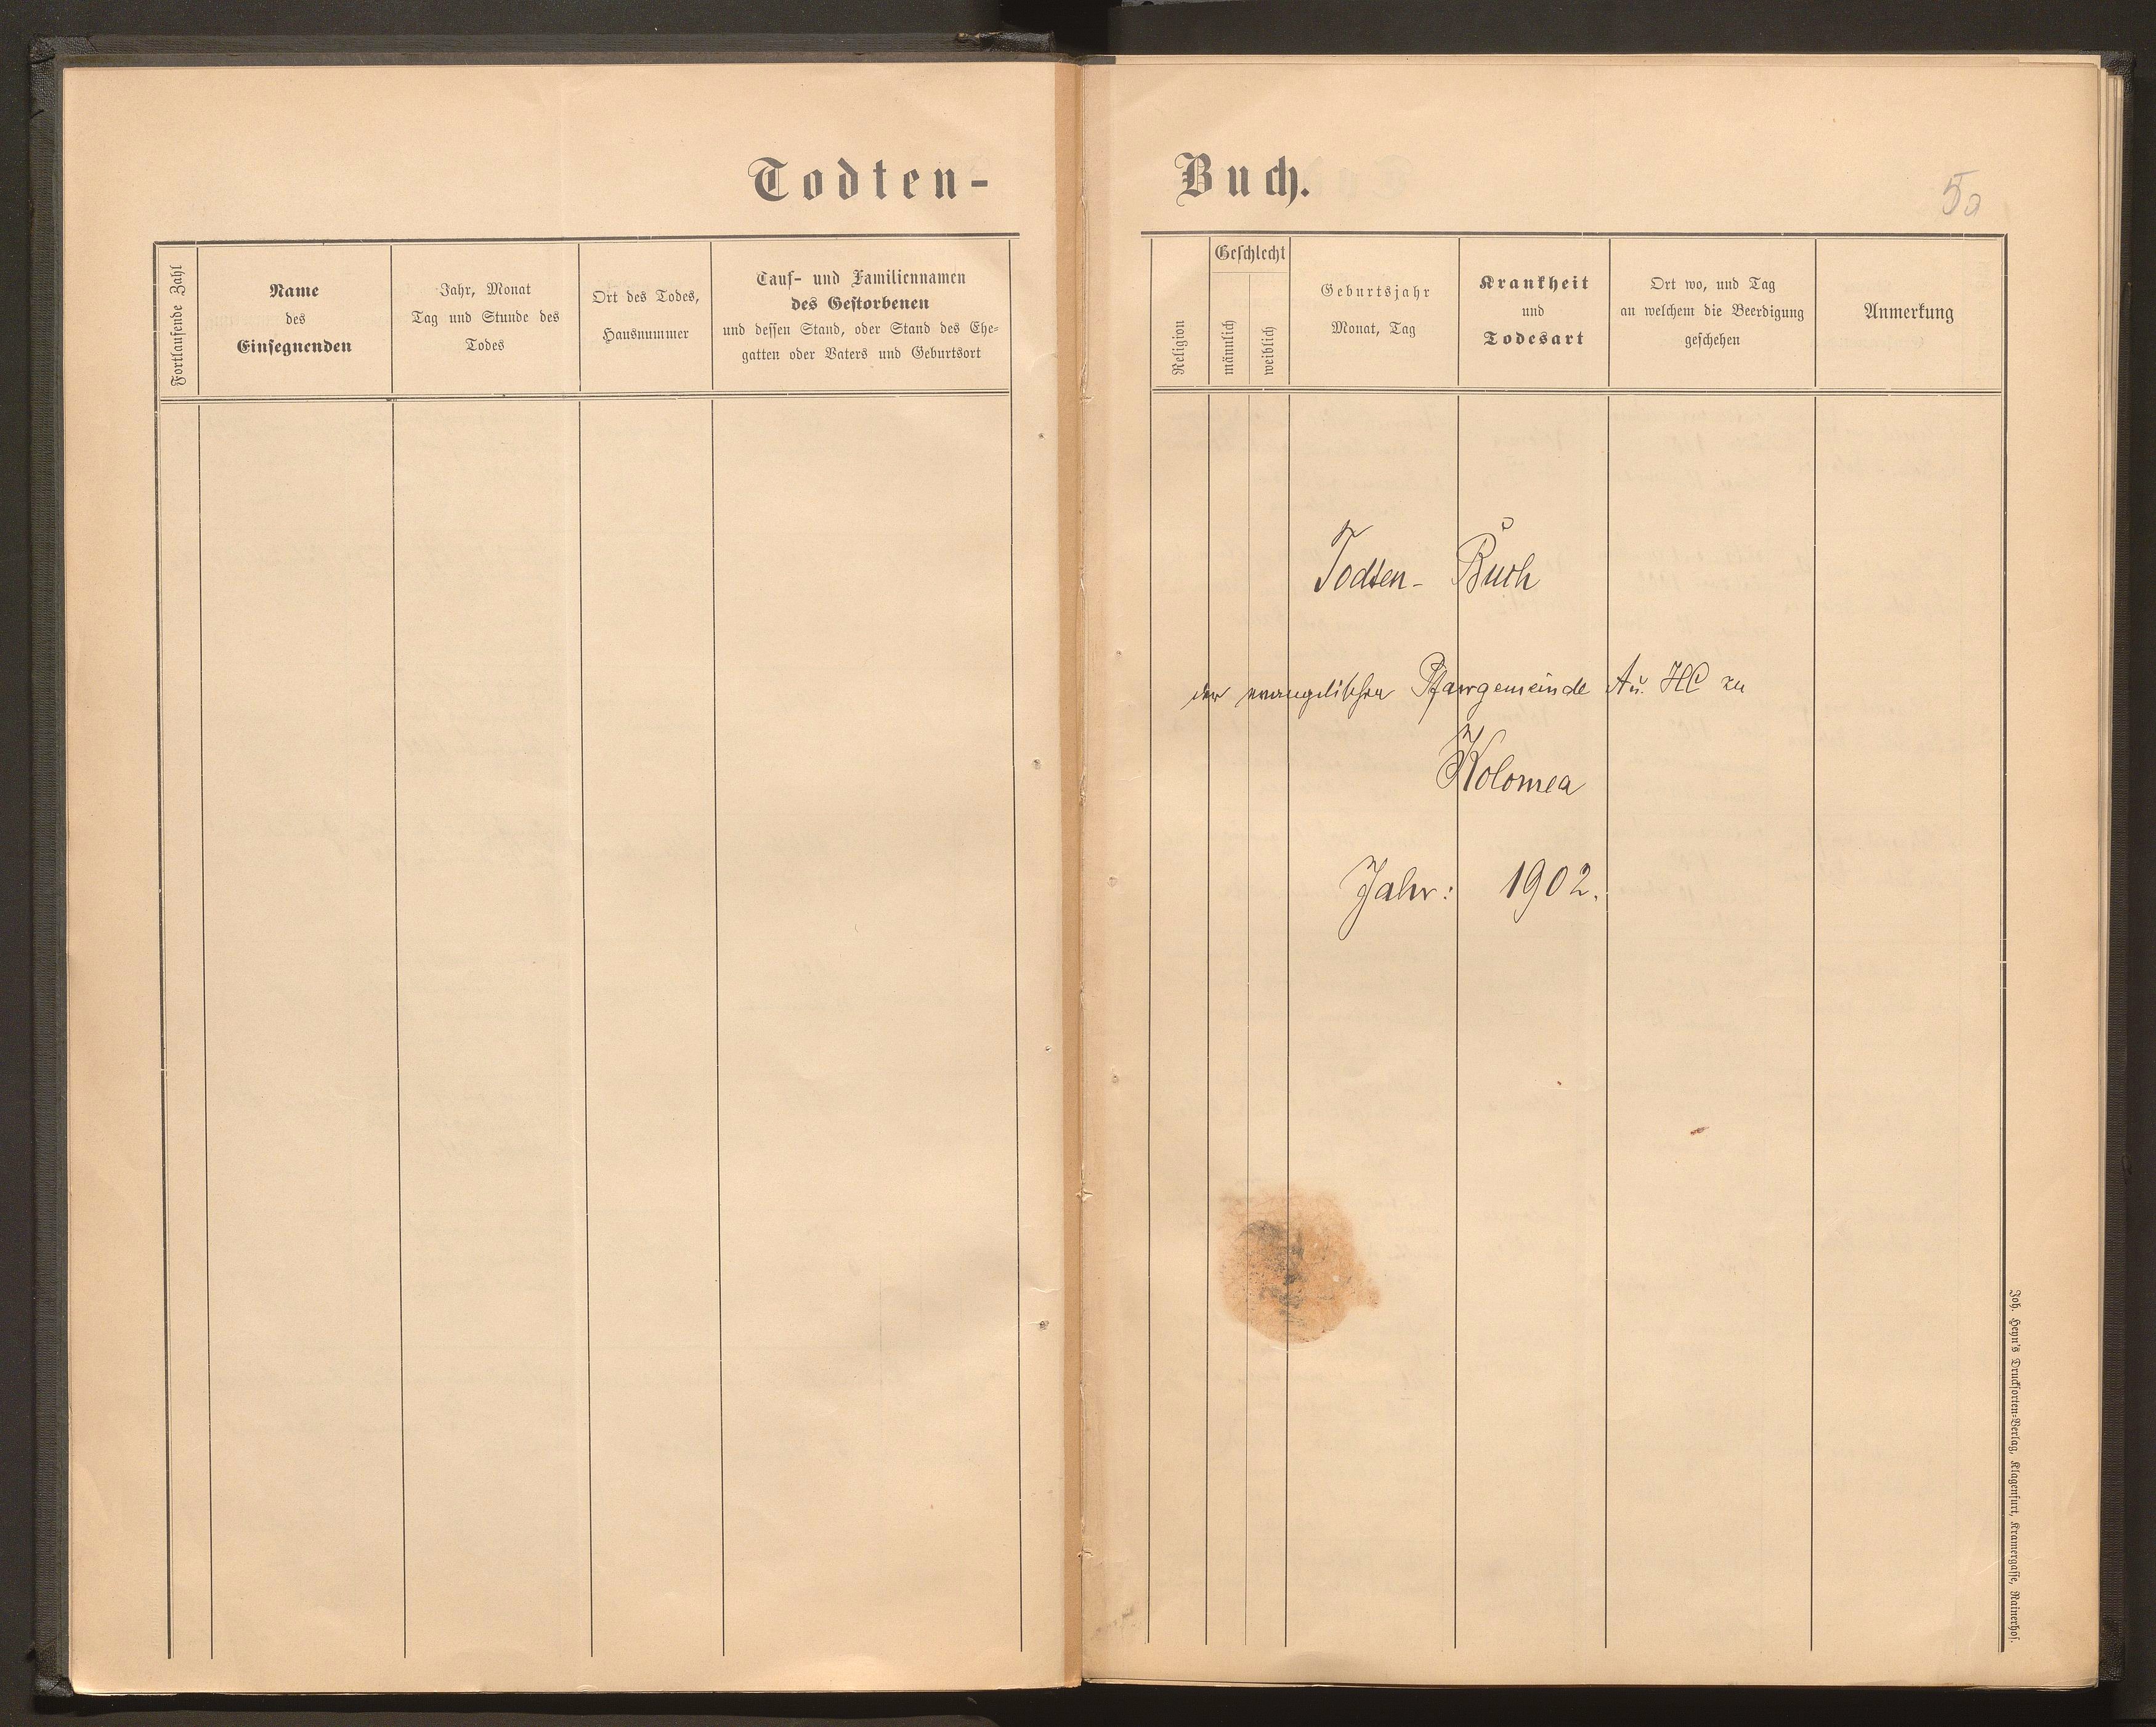 Todten-
Fortlaufende Zahl
Name
des
Einsegnenden
Jahr, Monat
Tag und Stunde des
Todes
Ort des Todes,
Hausnummer
Tauf- und Familiennamen
des Gestorbenen
und dessen Stand, oder Stand des Ehe-
gatten oder Vaters und Geburtsort
Buch.
Religion
Geschlecht
männlich
weiblich
Geburtsjahr
Monat, Tag
Krankheit
und
Todesart
Ort wo, und Tag
an welchem die Beerdigung
geschehen
Anmerkung
Todten- Buch
der evangelischen Pfarrgemeinde A u. HC zu
Kolomea
Jahr: 1902.
Joh. Heyn's Drucksorten-Verlag, Klagenfurt, Kramergasse, Rainerhof.